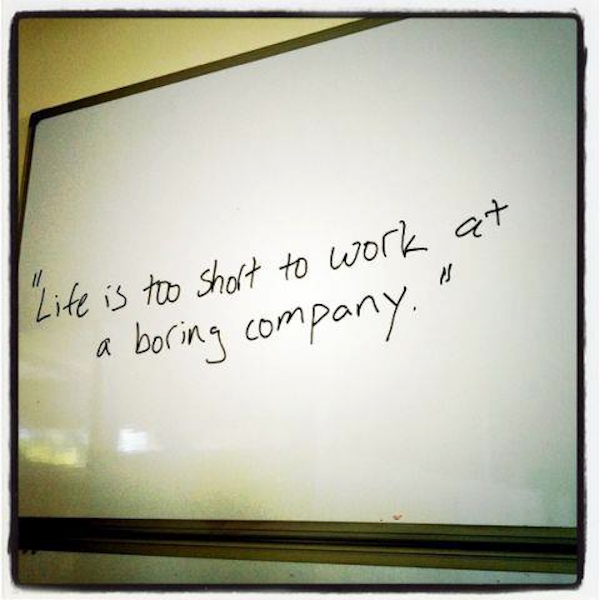 "Life is too short to work at
a boring company."